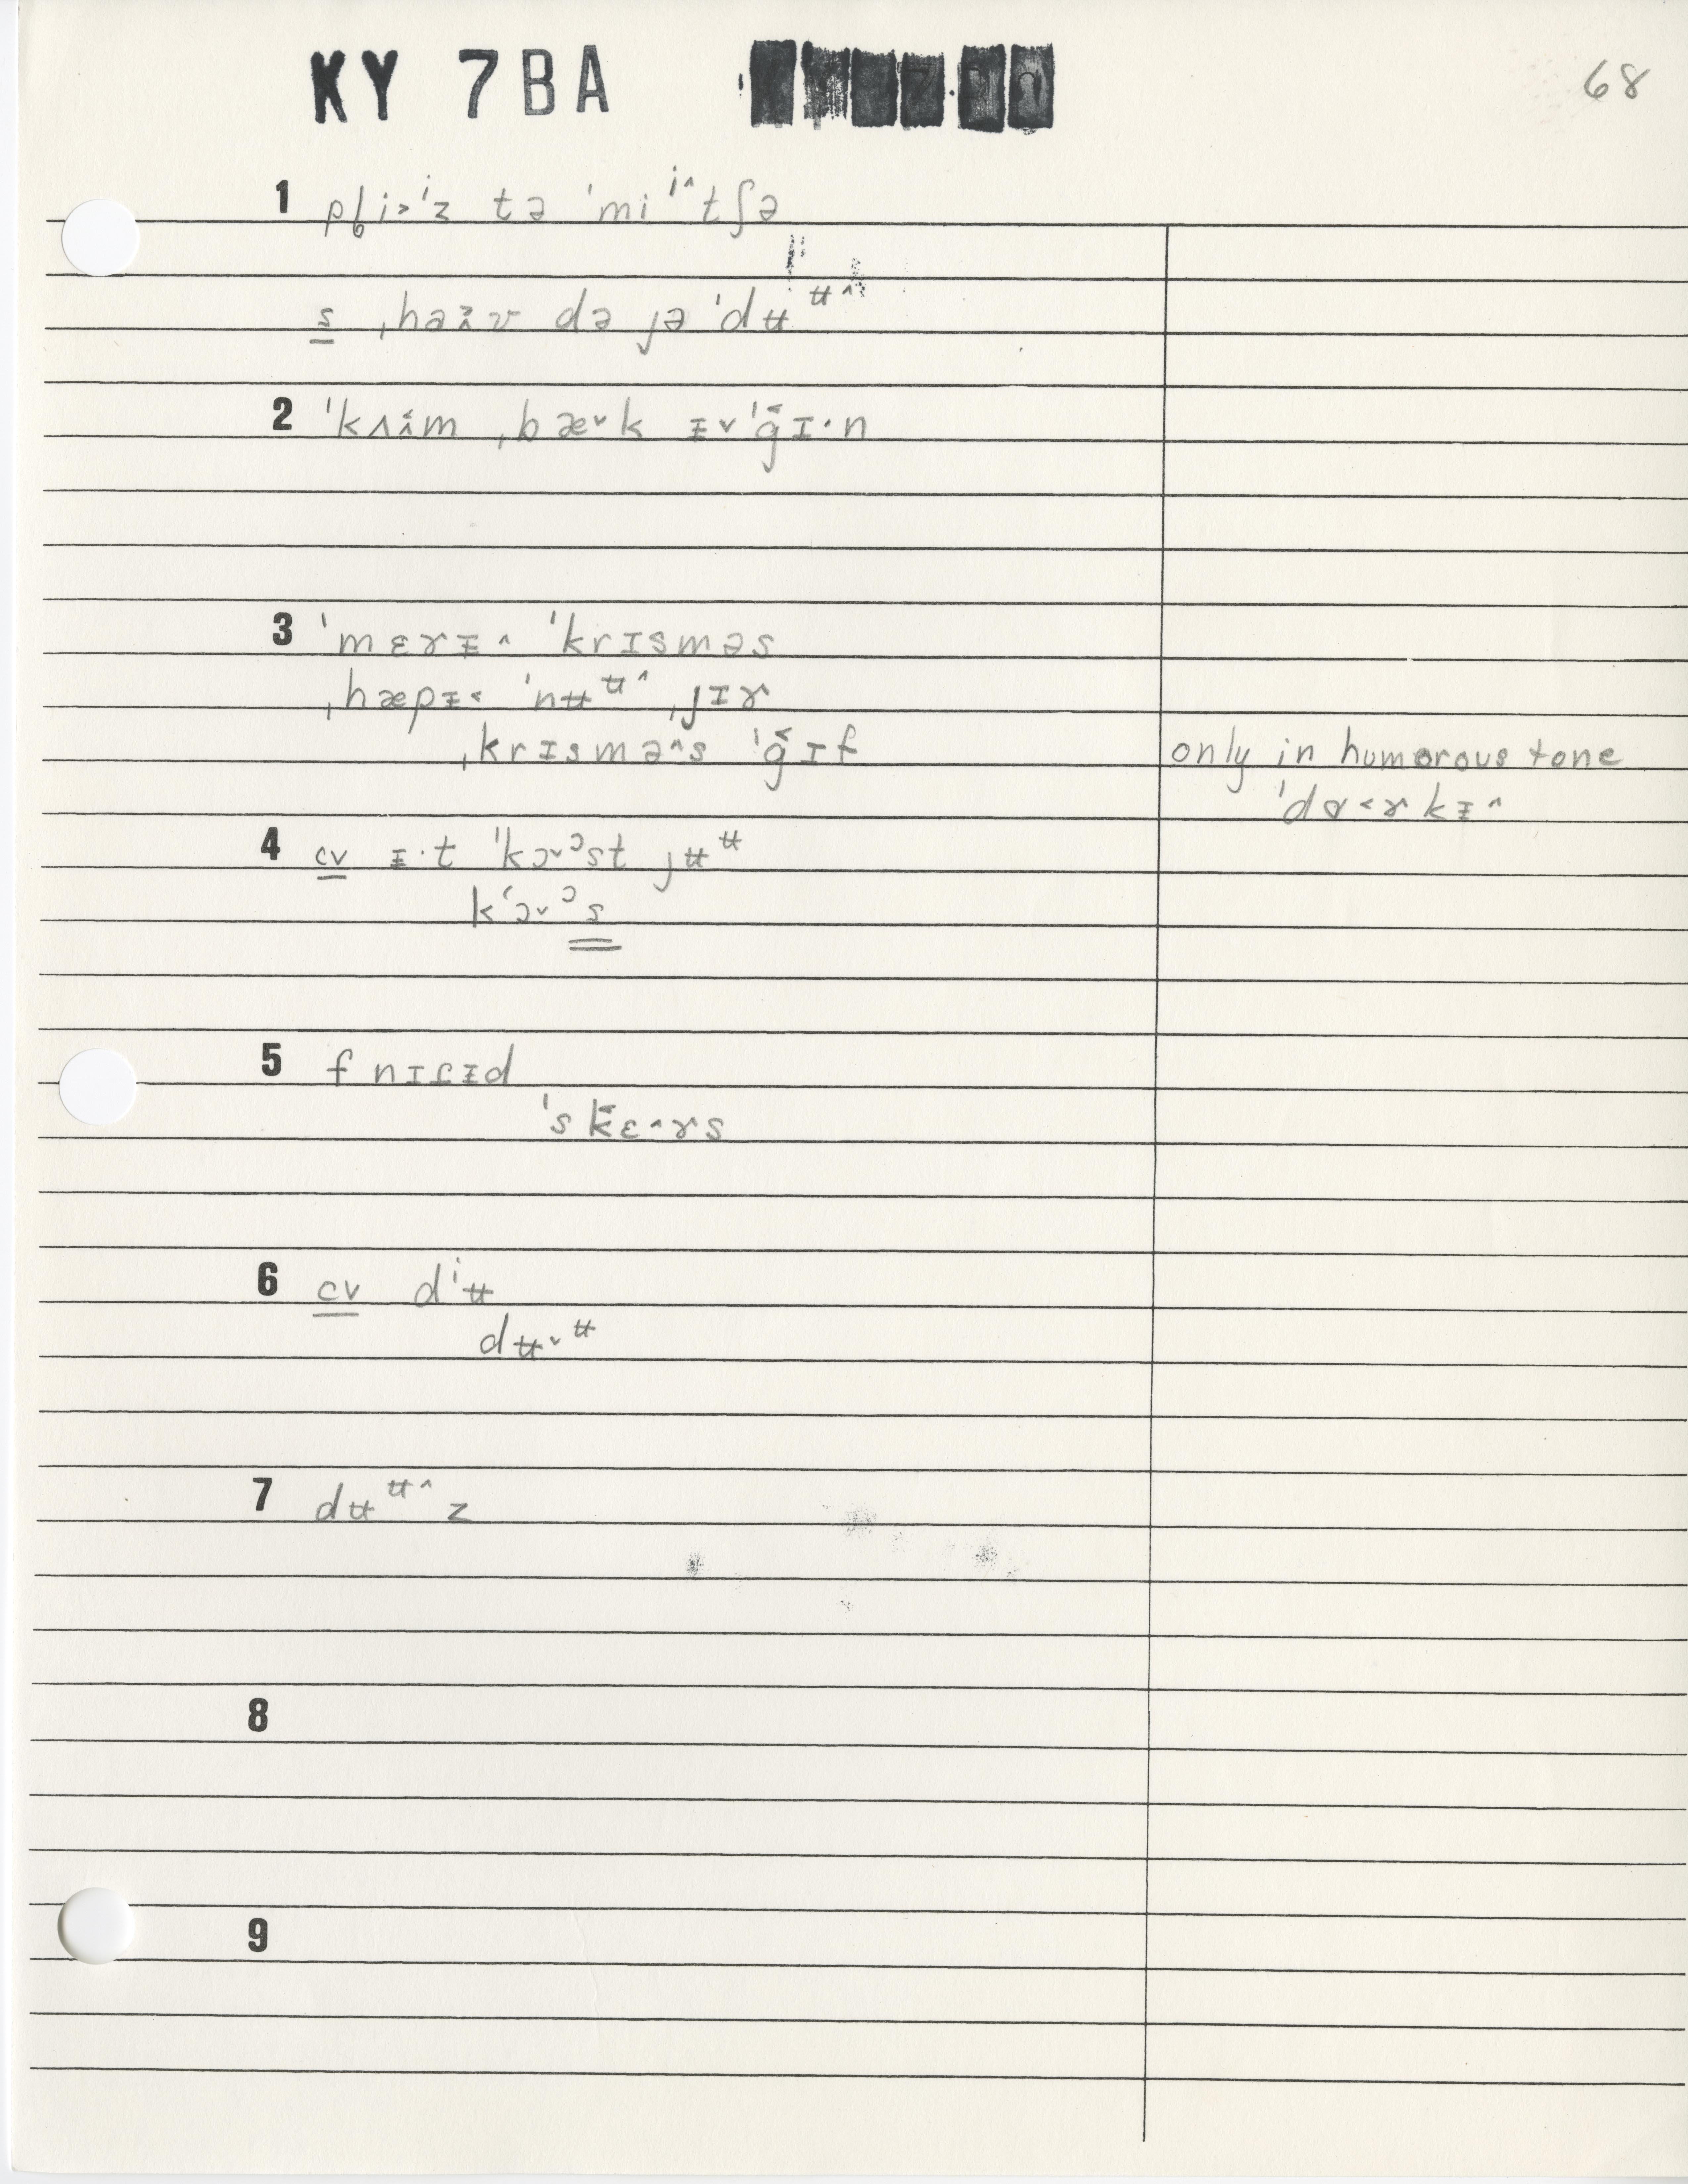 KY 7BA
68
1 pl̥i˃ⁱz tə ˈmiⁱ˄tʃə
s ˌhaɪv də jə ˈdʉᶶ˄
2 ˈkʌm ˌbæ˅k ᵻ˅ˈgɪ·n
3 ˈmɛrᵻ˄ ˈkrɪsməs
ˌhæpᵻ˂ ˈnʉᶶ˄ ˌjɪr
ˌkrɪsmə˄s ˈgɪf only in humorous tone
ˈdɑ˂rkᵻ˄
4 cv ᵻ·t ˈkɔ˅ᵓst jʉᶶ
kˈɔ˅ᵓs
5 f nɪɾᵻd
ˈsk̆ɛ˄rs
6 cv dⁱʉ
dʉ˅ᶶ
7 dʉᶶ˄z
8
9